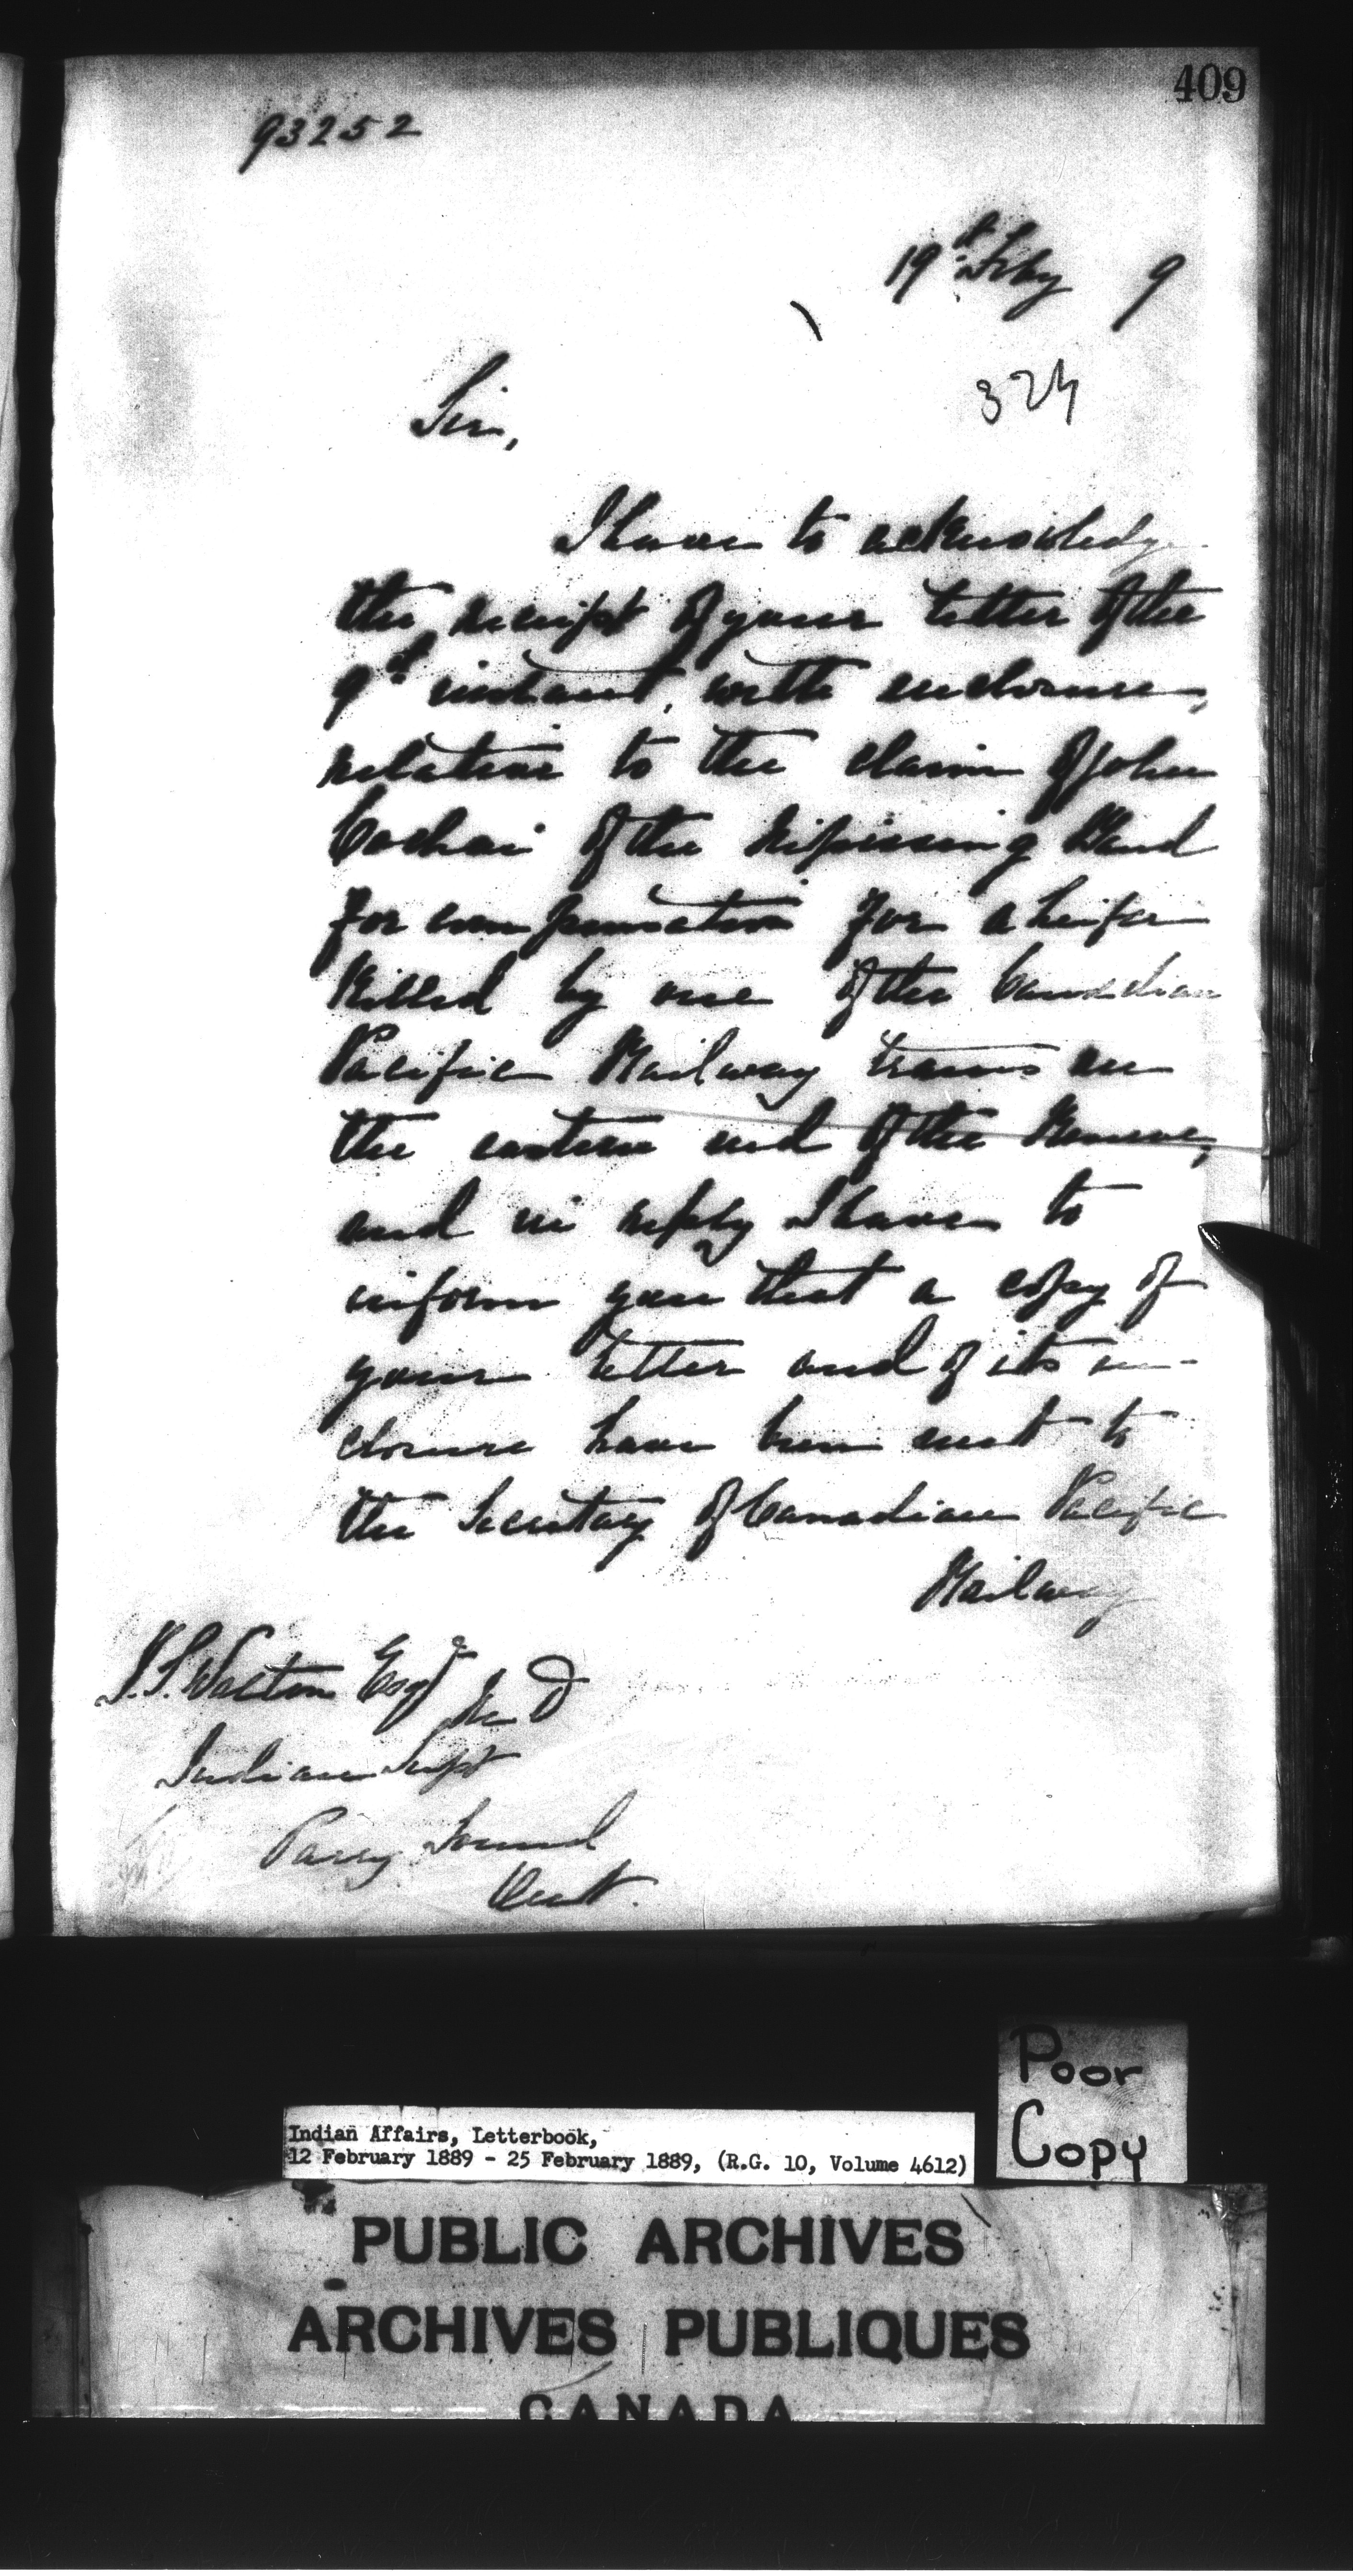 409
93252
19th Feby 9
324
Sir,
I have to acknowledge
the receipt of your letter of the
9th instant, with enclosure,
relative to the claim of John
Cochai of the Nipissing Band
for compensation for a heifer
killed by one of the Canadian
Pacific Railway trains on
the eastern end of the Reserve,
and in reply I have to
inform you that a copy of
your letter and of its en-
closure have been sent to
the Secretary of Canadian Pacific
Railway
T.S. Walton Esqre M.D
Indian Supt
Parry Sound
Ont.
Poor
Copy
Indian Affairs, Letterbook,
12 February 1889 - 25 February 1889, (R.G. 10, Volume 4612)
PUBLIC ARCHIVES
ARCHIVES PUBLIQUES
CANADA